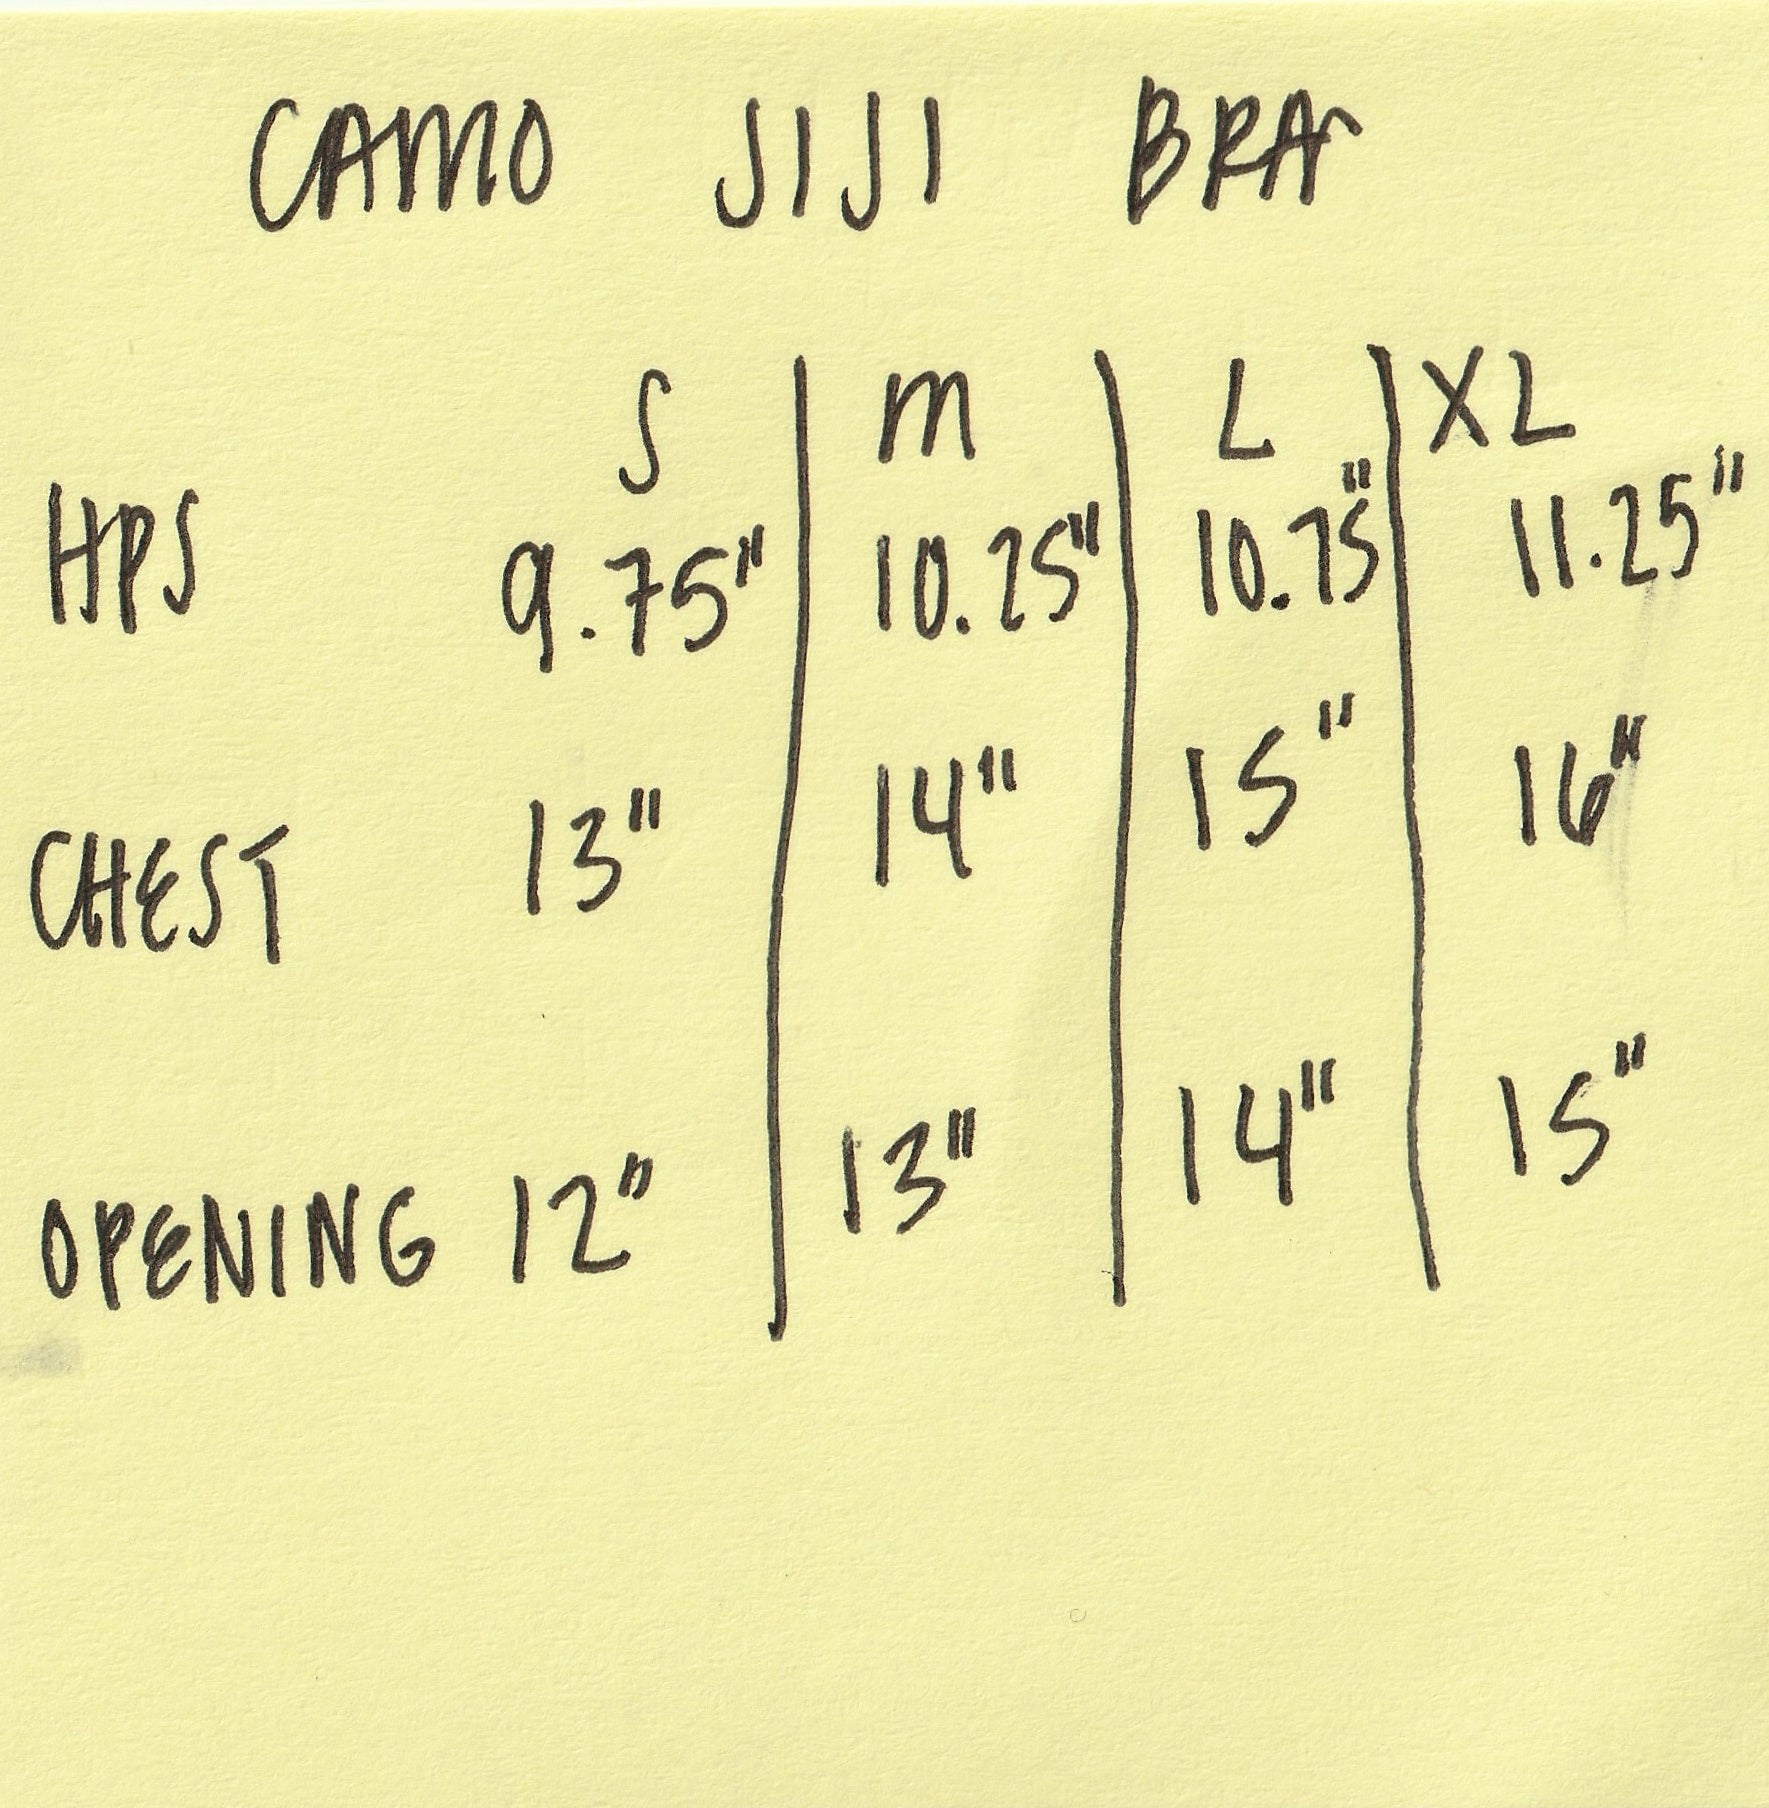 CAMO JIJI BRA
S M L XL
HPS 9.75" 10.25" 10.75" 11.25"
CHEST 13" 14" 15" 16"
OPENING 12" 13" 14" 15"